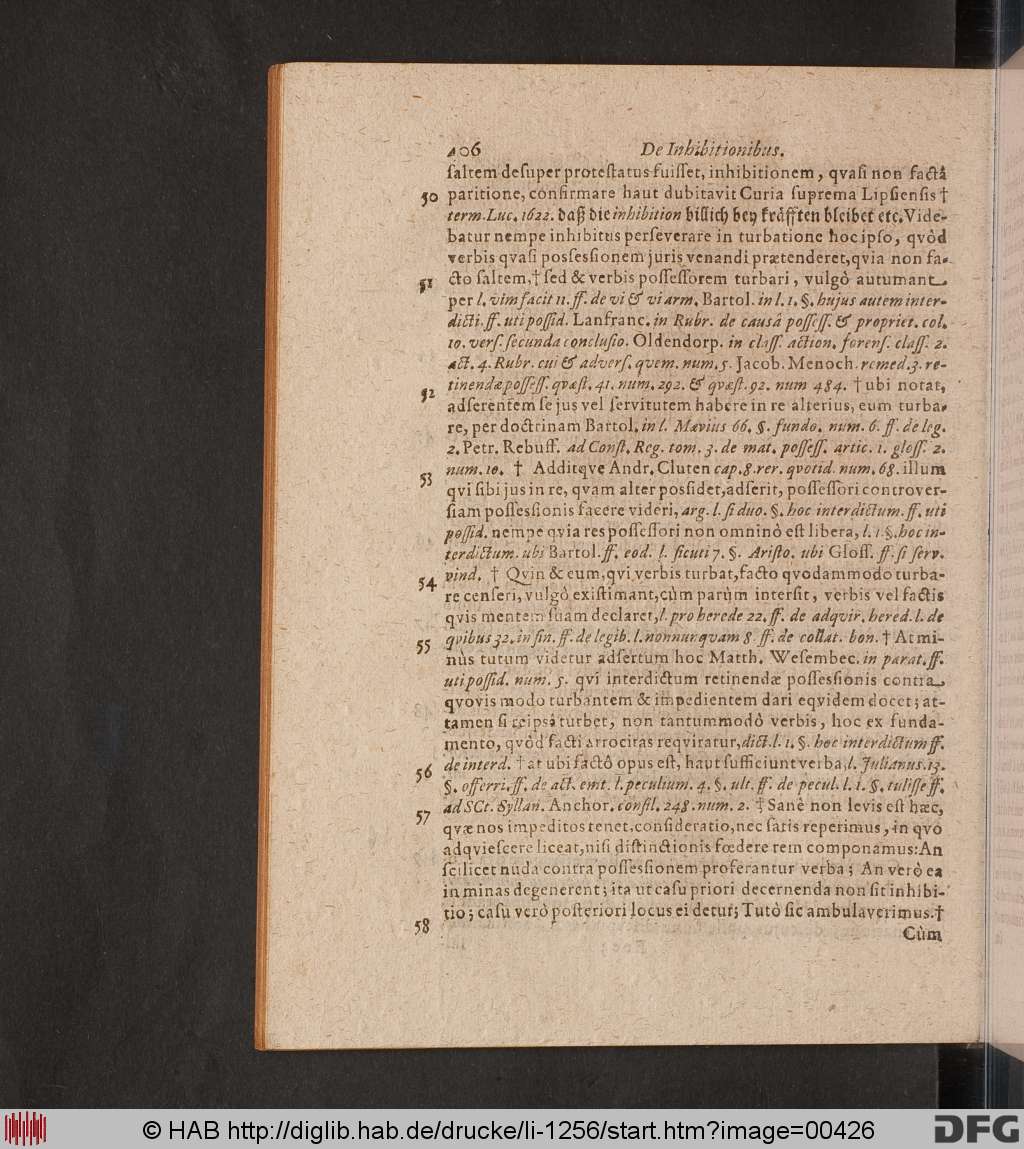 406 De Inhibitionibus.
ſaltem deſuper proteſtatus fuiſſet, inhibitionem, qvaſi non factâ
50 paritione, confirmare haut dubitavit Curia ſuprema Lipſienſis †
term. Luc. 1622. daß die inhibition billich bey kräfften bleibet etc. Vide-
batur nempe inhibitus perſeverare in turbatione hoc ipſo, qvòd
verbis qvaſi posſesſionem juris venandi prætenderet, qvia non fa-
51 cto ſaltem, † ſed & verbis poſſeſſorem turbari, vulgò autumant
per l. vim facit 11. ff. de vi & vi arm. Bartol. in l. 1. §. hujus autem inter-
dicti. ff. uti poſſid. Lanfranc. in Rubr. de causâ poſſeſſ. & propriet. col.
10. verſ. ſecunda concluſio. Oldendorp. in claſſ. action. forenſ. claſſ. 2.
act. 4. Rubr. cui & adverſ. qvem. num. 5. Jacob. Menoch. remed. 3. re-
52 tinendæ poſſeſſ. qvæſt. 41. num. 292. & qvæſt. 92. num 484. † ubi notat,
adſerentem ſe jus vel ſervitutem habere in re alterius, eum turba-
re, per doctrinam Bartol. in l. Mævius 66. §. fundo. num. 6. ff. de leg.
2. Petr. Rebuff. ad Conſt. Reg. tom. 3. de mat. poſſeſſ. artic. 1. gloſſ. 2.
53 num. 10. † Additqve Andr. Cluten cap. 8. rer. qvotid. num. 68. illum
qvi ſibi jus in re, qvam alter posſidet, adſerit, poſſeſſori controver-
ſiam poſſesſionis facere videri, arg. l. ſi duo. §. hoc interdictum. ff. uti
poſſid. nempe qvia res poſſeſſori non omninò eſt libera, l. 1 §. hoc in-
terdictum. ubi Bartol. ff. eod. l. ſicuti 7. §. Ariſto. ubi Gloſſ. ff. ſi ſerv.
54 vind. † Qvin & eum, qvi verbis turbat, facto qvodammodo turba-
re cenſeri, vulgò exiſtimant, cùm parùm interſit, verbis vel factis
qvis mentem ſuam declaret, l. pro herede 22. ff. de adqvir. hered. l. de
55 qvibus 32. in fin. ff. de legib. l. nonnunqvam 8. ff. de collat. bon. † At mi-
nùs tutum videtur adſertum hoc Matth. Weſembec. in parat. ff.
uti poſſid. num. 5. qvi interdictum retinendæ poſſesſionis contra
qvovis modo turbantem & impedientem dari eqvidem docet; at-
tamen ſi reipsâ turbet, non tantummodò verbis, hoc ex funda-
mento, qvòd facti atrocitas reqviratur, dict. l. 1. §. hoc interdictum ff.
56 de interd. † at ubi factô opus eſt, haut ſufficiunt verba, l. Julianus. 13.
§. offerri. ff. de act. emt. l. peculium. 4. §. ult. ff. de pecul. l. 1. §. tuliſſe ff.
57 ad SCt. Syllan. Anchor. conſil. 248. num. 2. † Sanè non levis eſt hæc,
qvæ nos impeditos tenet, conſideratio, nec ſatis reperimus, in qvô
adqvieſcere liceat, niſi diſtinctionis fœdere rem componamus: An
ſcilicet nuda contra poſſesſionem proferantur verba; An verò ea
in minas degenerent; ita ut caſu priori decernenda non ſit inhibi-
58 tio; caſu verò poſteriori locus ei detur; Tutò ſic ambulaverimus. †
Cùm
© HAB http://diglib.hab.de/drucke/li-1256/start.htm?image=00426
DFG